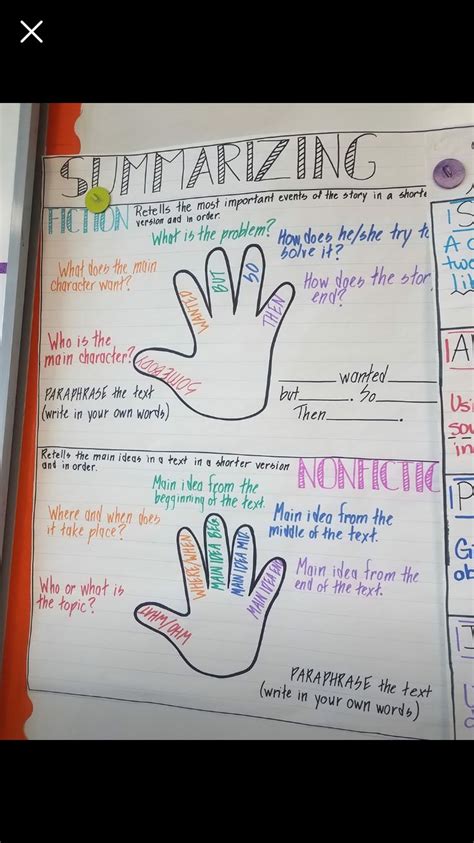 SUMMARIZING
FICTION
Retells the most important events of the story in a shorte
version and in order.
What is the problem?
How does he/she try to
solve it?
What does the main
character want?
How does the stor
end?
Who is the
main character?
SOMEBODY
WANTED
BUT
SO
THEN
PARAPHRASE the text
(write in your own words)
______ wanted______
but______. So______
Then______.
Retells the main ideas in a text in a shorter version
and in order.
NONFICTIC
Main idea from the
beggining of the text.
Where and when does
it take place?
Main idea from the
middle of the text.
Who or what is
the topic?
Main idea from the
end of the text.
WHO/WHAT
WHERE/WHEN
MAIN IDEA BEG
MAIN IDEA MID
MAIN IDEA END
PARAPHRASE the text
(write in your own words)
S
A
two
lit
A
Usi
sou
in
P
Gi
ob
I